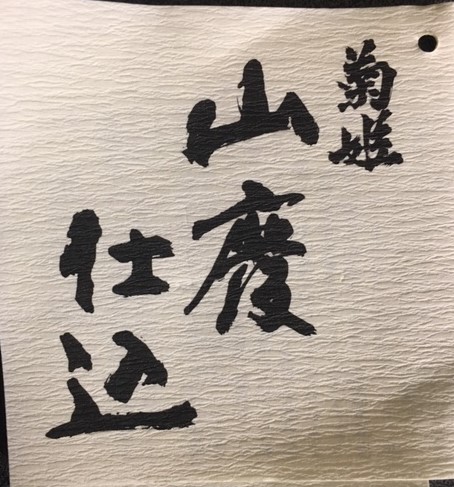 菊姫
山廃
仕込